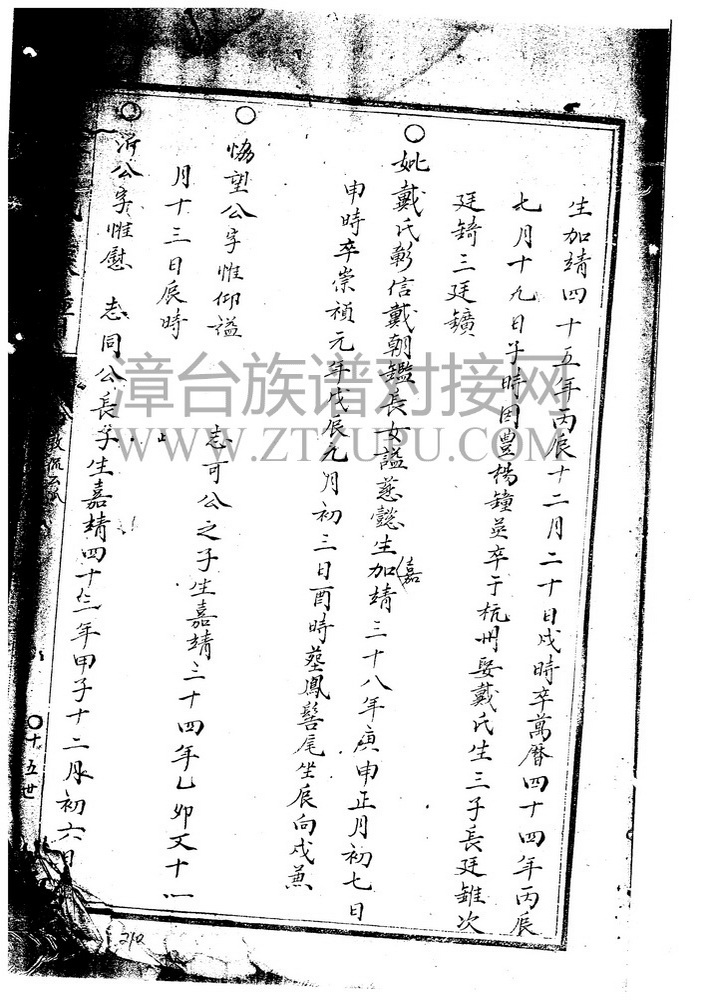 生加靖四十五年丙辰十二月二十日戌時卒萬曆四十四年丙辰
七月十九日午時因豐楊鐘英卒于杭州娶戴氏生三子長廷錐次
廷錡三廷鑛
妣戴氏彰信戴朝鑑長女謚慈懿生加靖三十八年庚申正月初七日
嘉
申時卒崇禎元年戊辰九月初三日酉時塟鳳髻尾坐辰向戌兼
恊望公字惟仰謚 志可公之子生嘉靖三十四年乙卯又十一
月十三日辰時
沂公字惟慰 志同公長子生嘉靖四十三年甲子十二月初六日
十五世
210
漳台族谱对接网
WWW.ZTZUPU.COM